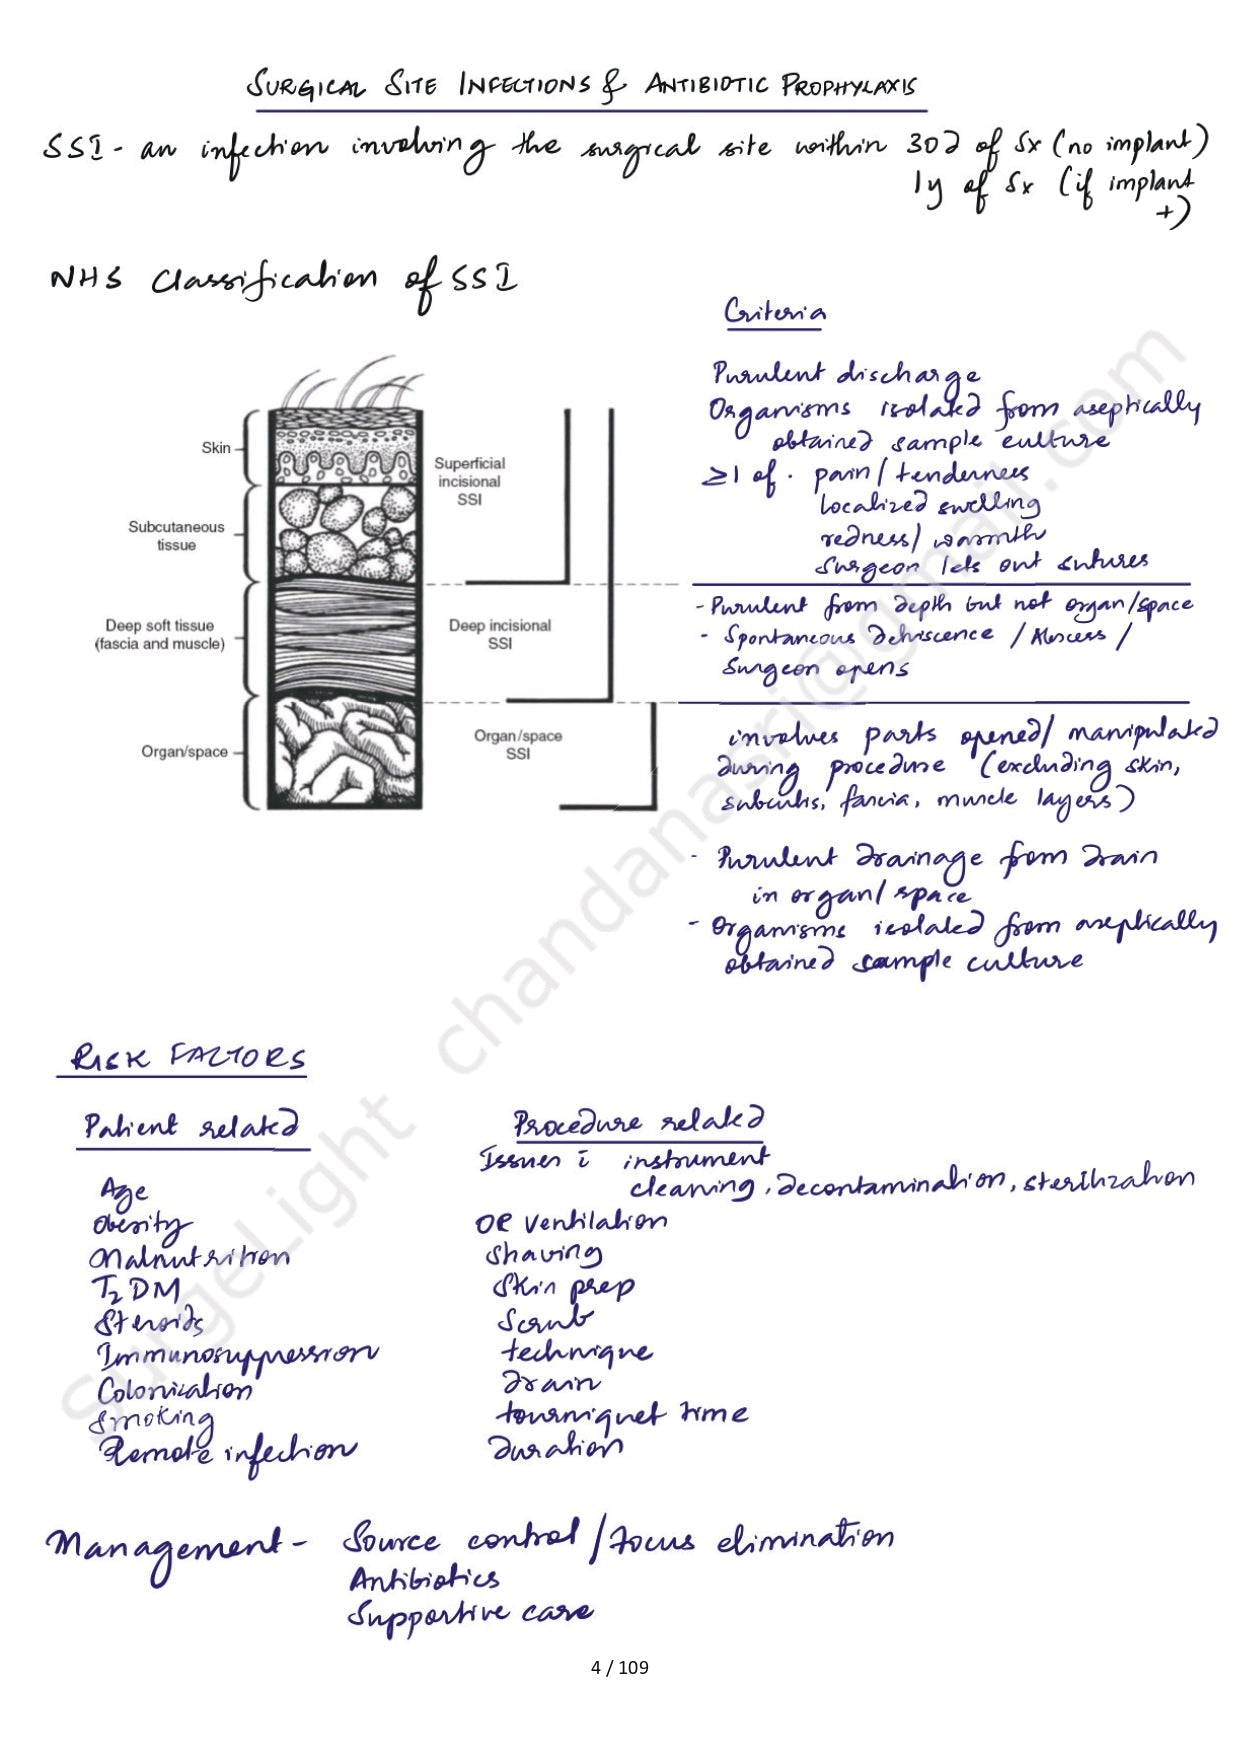 SURGICAL SITE INFECTIONS & ANTIBIOTIC PROPHYLAXIS
SSI - an infection involving the surgical site within 30d of Sx (no implant)
1y of Sx (if implant
+)
NHS Classification of SSI
Criteria
Purulent discharge
Organisms isolated from aseptically
obtained sample culture
≥1 of . pain/tenderness
localized swelling
redness/warmth
Surgeon lets out sutures
- Purulent from depth but not organ/space
- Spontaneous dehiscence / Abscess /
Surgeon opens
involves parts opened/manipulated
during procedure (excluding skin,
subcutis, fascia, muscle layers)
- Purulent drainage from drain
in organ/space
- Organisms isolated from aseptically
obtained sample culture
Skin
Subcutaneous
tissue
Deep soft tissue
(fascia and muscle)
Organ/space
Superficial
incisional
SSI
Deep incisional
SSI
Organ/space
SSI
RISK FACTORS
Patient related
Age
Obesity
Malnutrition
T2DM
Steroids
Immunosuppression
Colonization
Smoking
Remote infection
Procedure related
Issues c̄ instrument
cleaning, decontamination, sterilization
OR ventilation
shaving
Skin prep
Scrub
technique
drain
tourniquet time
duration
Management - Source control / focus elimination
Antibiotics
Supportive care
surgeLight chandanasri@gmail.com
4 / 109